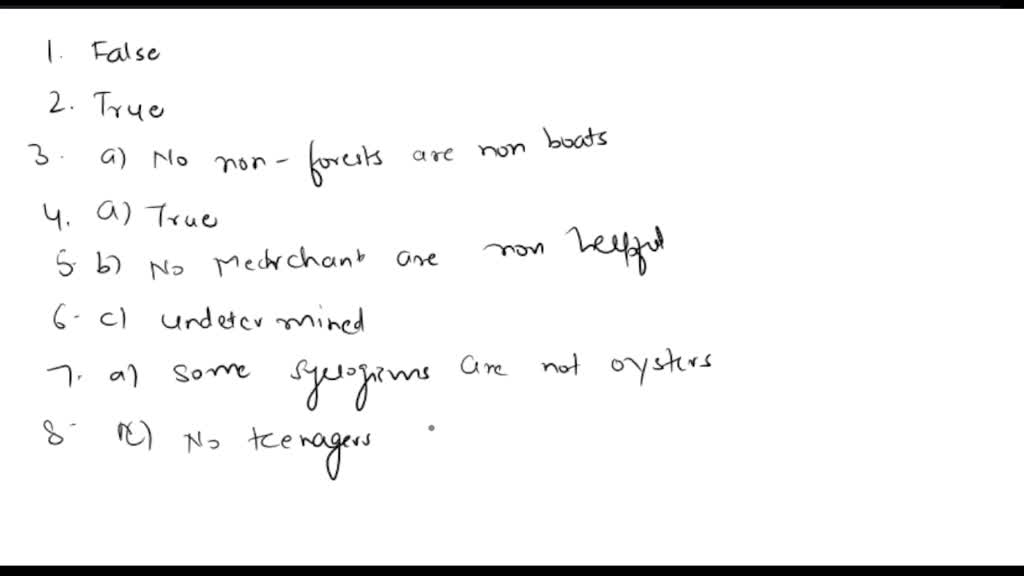 1. False
2. True
3. a) No non-forests are non boats
4. a) True
5. b) No Medrchant are non helpful
6. c) undetermined
7. a) some sylogisms are not oysters
8. c) No teenagers